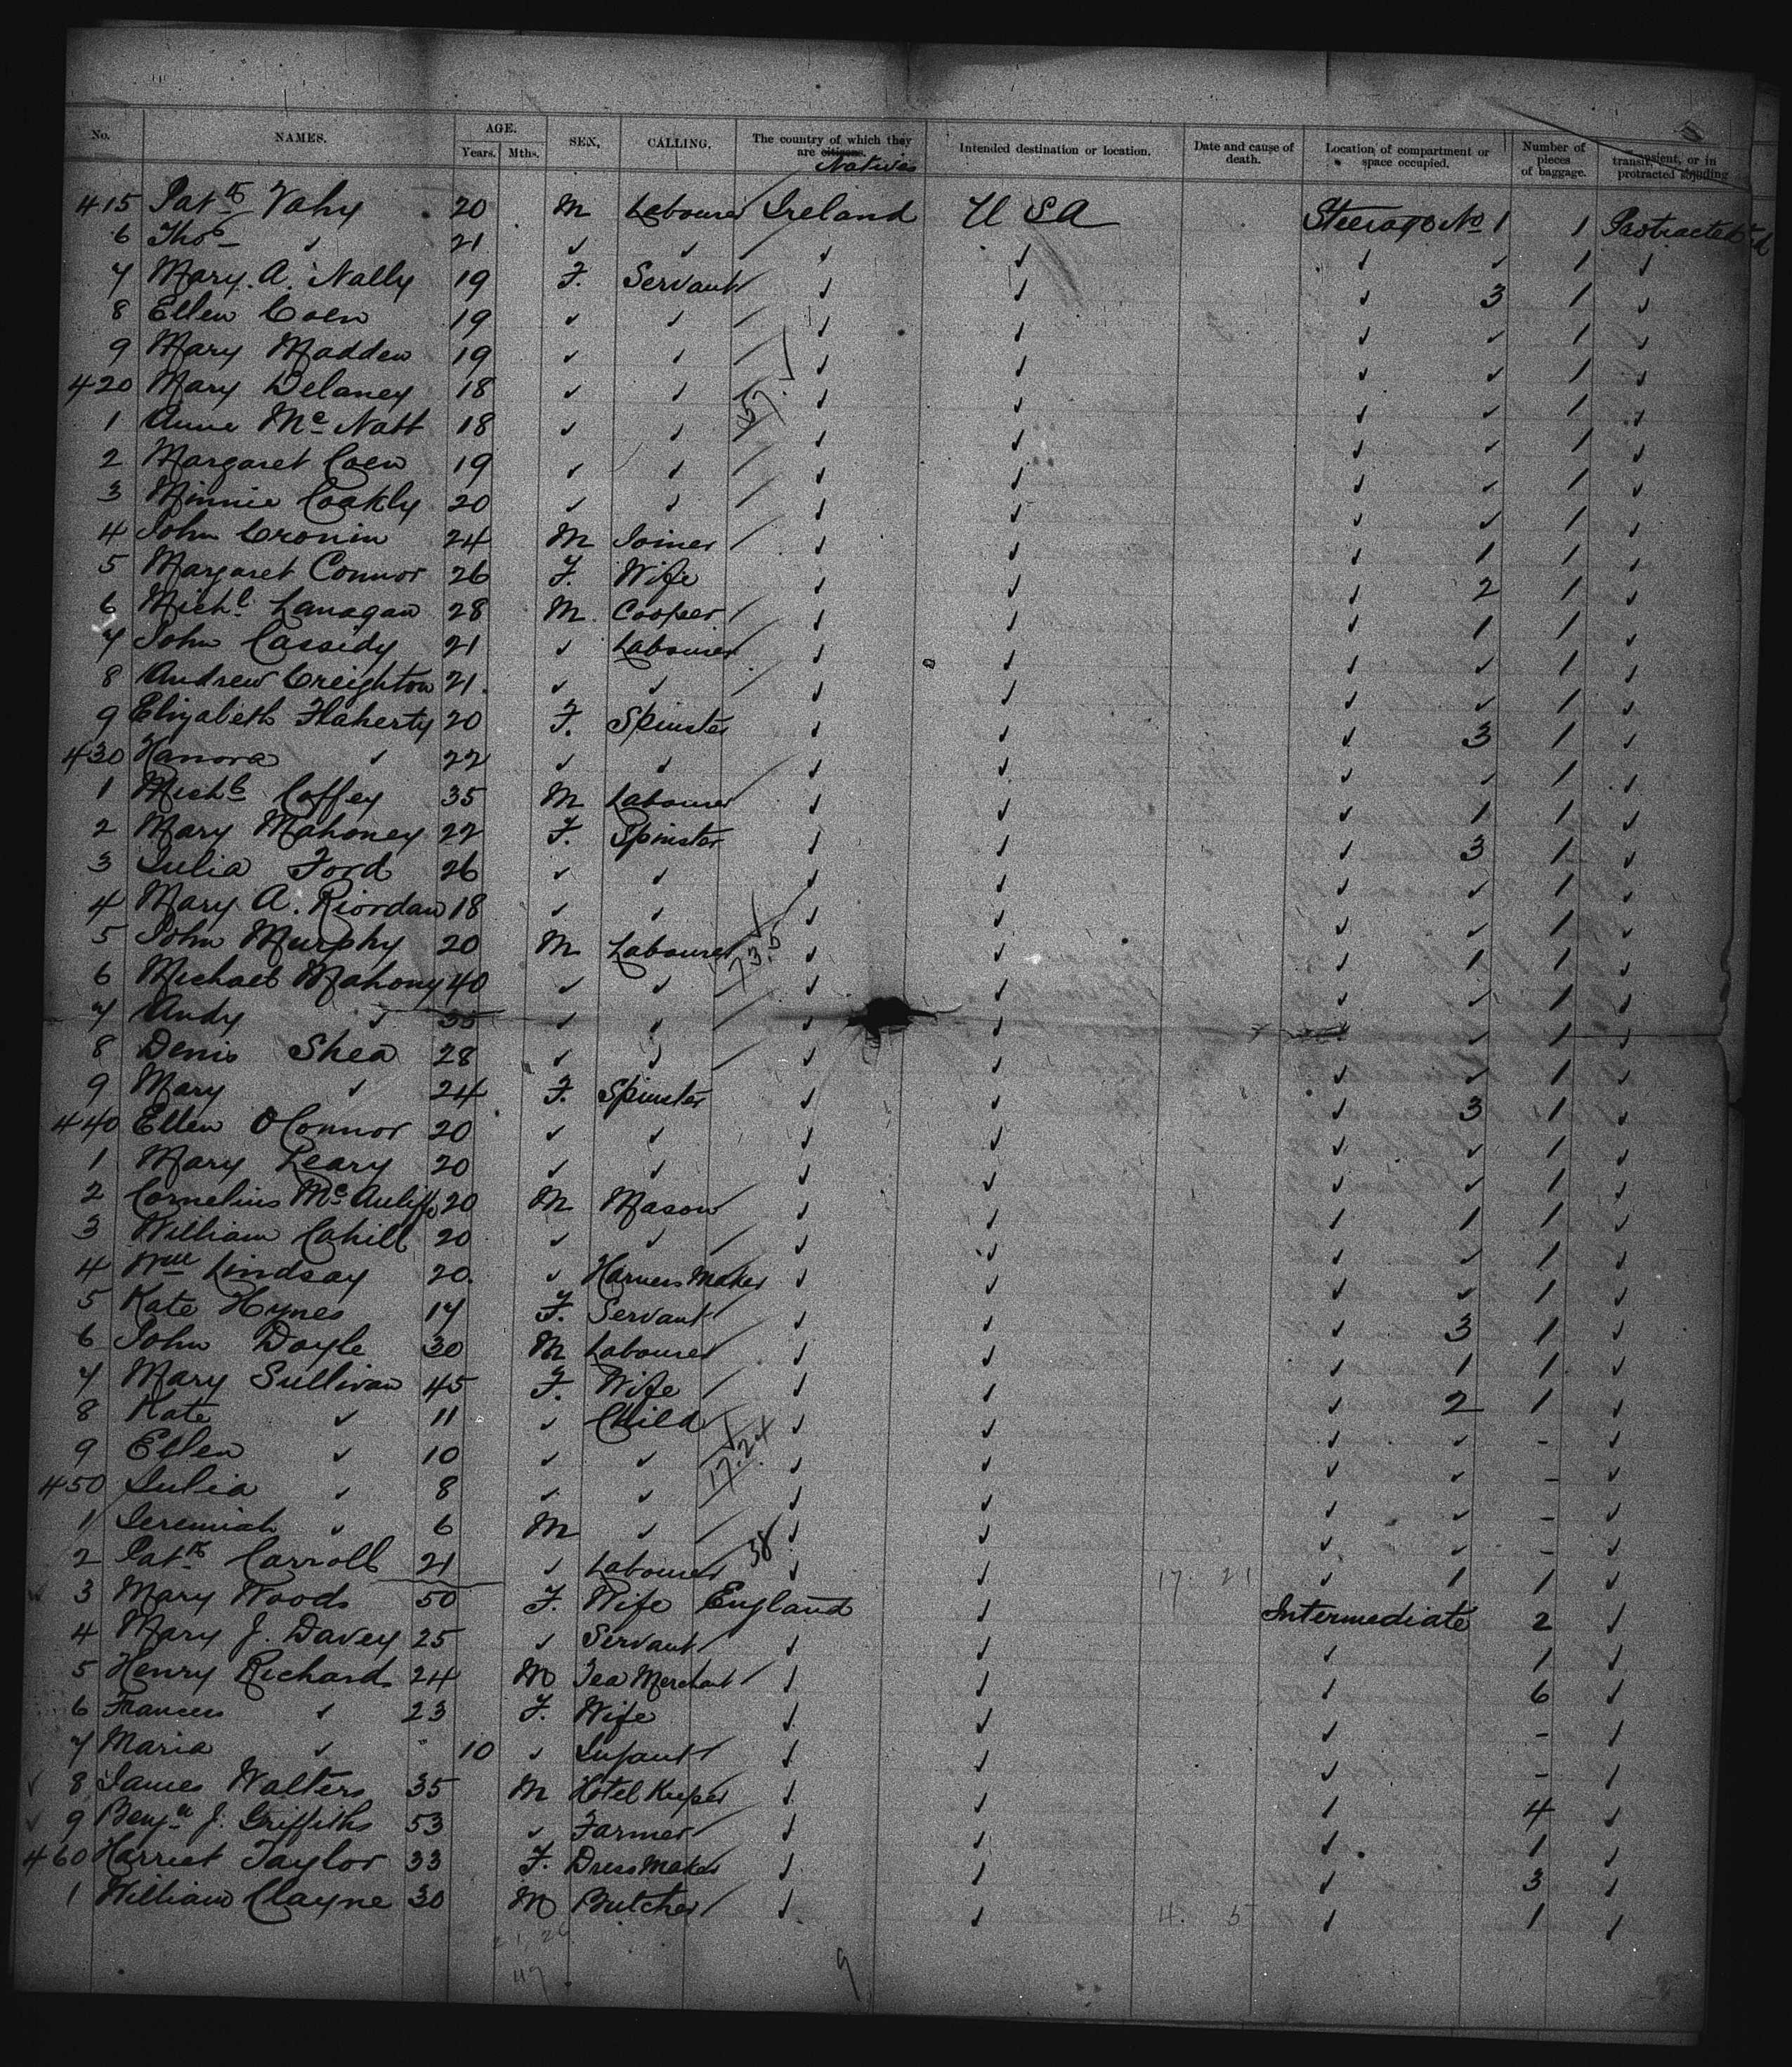 No. NAMES. AGE. Years. Mths. SEX, CALLING. The country of which they are citizens. Natives Intended destination or location. Date and cause of death. Location of compartment or space occupied. Number of pieces of baggage. Transient, or in transit, or in protracted sojuding
415 Patk Vahy 20 M Labourer Ireland U S A Steerage No 1 1 Protracted
6 Thos ✓ 21 ✓ ✓ ✓ ✓ ✓ ✓ 1 ✓
7 Mary. A. Nally 19 F. Servant ✓ ✓ ✓ 3 1 ✓
8 Ellen Coen 19 ✓ ✓ ✓ ✓ ✓ ✓ 1 ✓
9 Mary Madden 19 ✓ ✓ ✓ ✓ ✓ ✓ 1 ✓
420 Mary Delaney 18 ✓ ✓ ✓ ✓ ✓ ✓ 1 ✓
1 Anne Mc Natt 18 ✓ ✓ ✓ ✓ ✓ ✓ 1 ✓
2 Margaret Coen 19 ✓ ✓ ✓ ✓ ✓ ✓ 1 ✓
3 Minnie Coakly 20 ✓ ✓ ✓ ✓ ✓ ✓ 1 ✓
4 John Cronin 24 M Joiner ✓ ✓ ✓ 1 1 ✓
5 Margaret Connor 26 F. Wife ✓ ✓ ✓ 2 1 ✓
6 Michl Lanagan 28 M. Cooper ✓ ✓ ✓ 1 1 ✓
7 John Cassidy 21 ✓ Labourer ✓ ✓ ✓ ✓ 1 ✓
8 Andrew Creighton 21. ✓ ✓ ✓ ✓ ✓ ✓ 1 ✓
9 Elizabeth Flaherty 20 F. Spinster ✓ ✓ ✓ 3 1 ✓
430 Hanora ✓ 22 ✓ ✓ ✓ ✓ ✓ ✓ 1 ✓
1 Michl Coffey 35 M Labourer ✓ ✓ ✓ 1 1 ✓
2 Mary Mahoney 22 F. Spinster ✓ ✓ ✓ 3 1 ✓
3 Julia Ford 26 ✓ ✓ ✓ ✓ ✓ ✓ 1 ✓
4 Mary A. Riordan 18 ✓ ✓ ✓ ✓ ✓ ✓ 1 ✓
5 John Murphy 20 M Labourer ✓ ✓ ✓ 1 1 ✓
6 Michael Mahony 40 ✓ ✓ ✓ ✓ ✓ ✓ 1 ✓
7 Andy ✓ 35 ✓ ✓ ✓ ✓ ✓ 1 ✓
8 Denis Shea 28 ✓ ✓ ✓ ✓ ✓ ✓ 1 ✓
9 Mary ✓ 24 F. Spinster ✓ ✓ ✓ 3 1 ✓
440 Ellen O'Connor 20 ✓ ✓ ✓ ✓ ✓ ✓ 1 ✓
1 Mary Leary 20 ✓ ✓ ✓ ✓ ✓ ✓ 1 ✓
2 Cornelius Mc Auliffe 20 M Mason ✓ ✓ ✓ 1 1 ✓
3 William Cahill 20 ✓ ✓ ✓ ✓ ✓ ✓ 1 ✓
4 Wm Lindsay 20. ✓ Harness Maker ✓ ✓ ✓ ✓ 1 ✓
5 Kate Hynes 17 F. Servant ✓ ✓ ✓ 3 1 ✓
6 John Doyle 30 M Labourer ✓ ✓ ✓ 1 1 ✓
7 Mary Sullivan 45 F. Wife ✓ ✓ ✓ 2 1 ✓
8 Kate ✓ 11 ✓ Child ✓ ✓ ✓ ✓ - ✓
9 Ellen ✓ 10 ✓ ✓ 17.24 ✓ ✓ ✓ ✓ - ✓
450 Julia ✓ 8 ✓ ✓ ✓ ✓ ✓ ✓ - ✓
1 Jeremiah ✓ 6 M ✓ ✓ ✓ ✓ ✓ - ✓
2 Patk Carroll 21 ✓ Labourer 38 ✓ ✓ 17. 21 ✓ 1 1 ✓
3 Mary Woods 50 F. Wife England ✓ Intermediate 2 ✓
4 Mary J. Davey 25 ✓ Servant ✓ ✓ ✓ 1 ✓
5 Henry Richards 24 M Tea Merchant ✓ ✓ ✓ 6 ✓
6 Frances ✓ 23 F. Wife ✓ ✓ ✓ - ✓
7 Maria ✓ 10 ✓ Infant ✓ ✓ ✓ - ✓
8 James Walters 35 M Hotel Keeper ✓ ✓ ✓ 4 ✓
9 Benjn J. Griffiths 53 ✓ Farmer ✓ ✓ ✓ 1 ✓
460 Harriet Taylor 33 F. Dress Maker ✓ ✓ ✓ 3 ✓
1 William Clayne 30 M Butcher ✓ ✓ 4. 5 ✓ 1 ✓
9